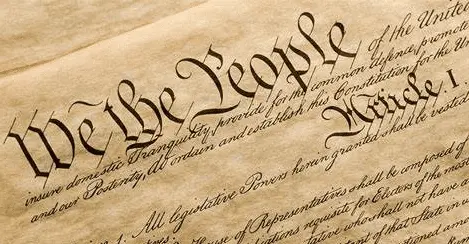 We the People of the United
insure domestic Tranquility, provide for the common defence, promote
and our Posterity, do ordain and establish this Constitution for the
Article. I.
All legislative Powers herein granted shall be vested
of Representatives shall be composed of
requisite for Electors of the most
who shall not have
of that State in